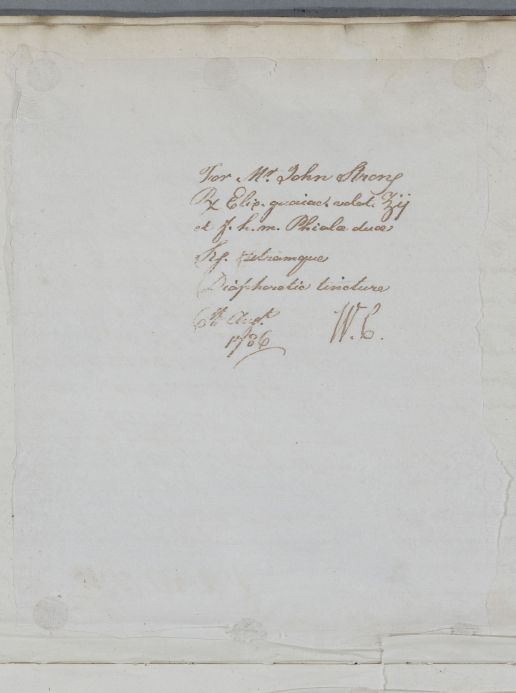 For Mr. John Strong
℞ Elix. guaiac. volat. ℥ij
et f. h. m. Phialæ duæ
Sig. utramque
Diaphoretic tincture
6th Augt. W. C.
1786